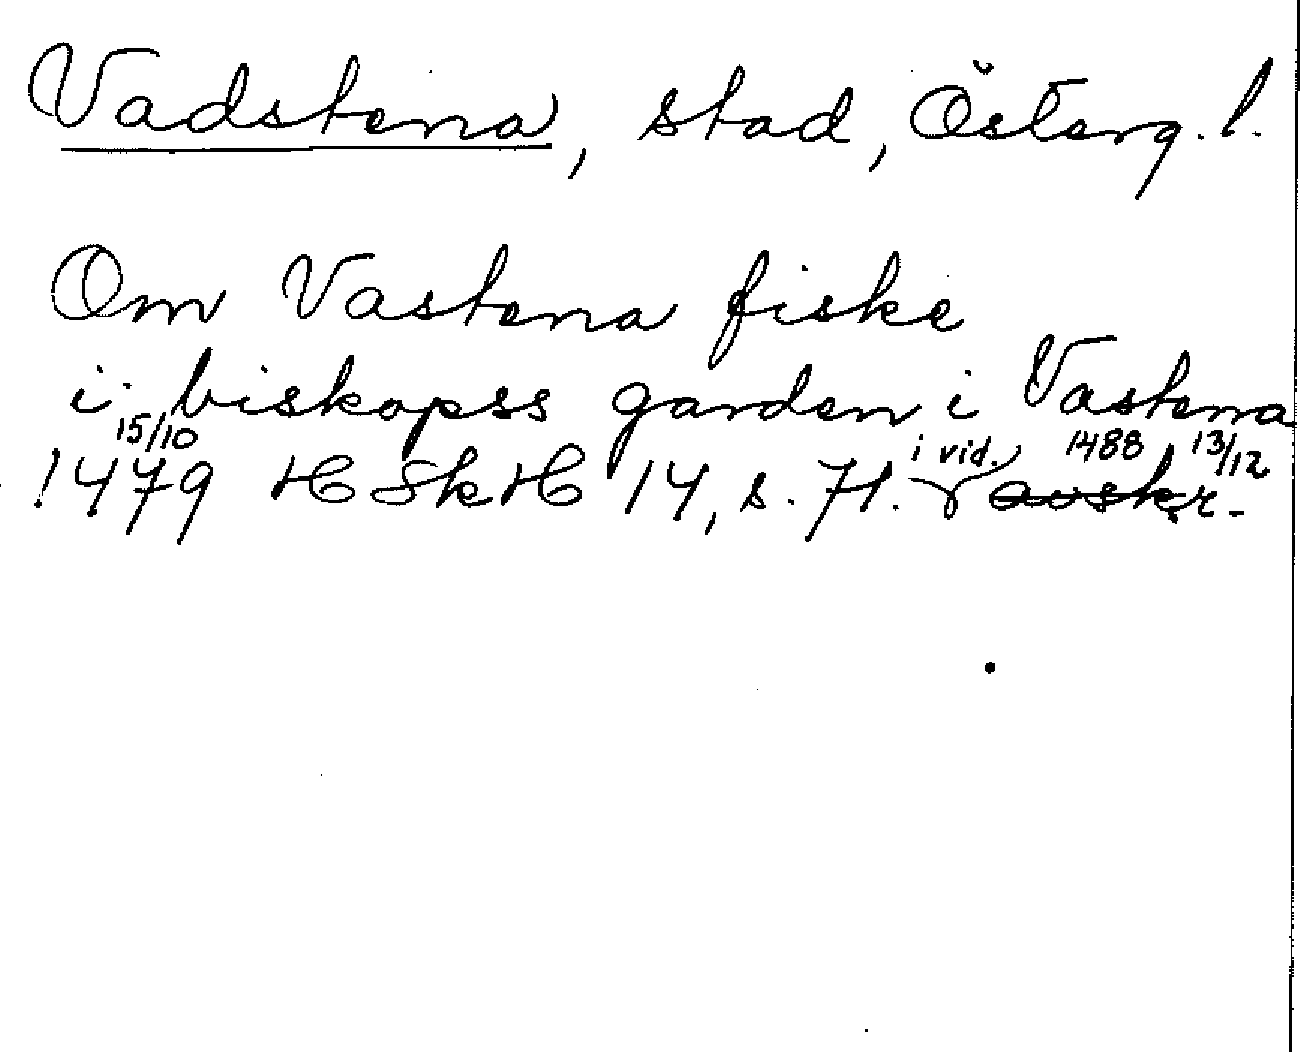 Vadstena, stad, Österg. l.
Om Vastena fiske
i biskopss garden i Vastena
1479 15/10 HSkH 14, s. 71. i vid. 1488 13/12 avskr.